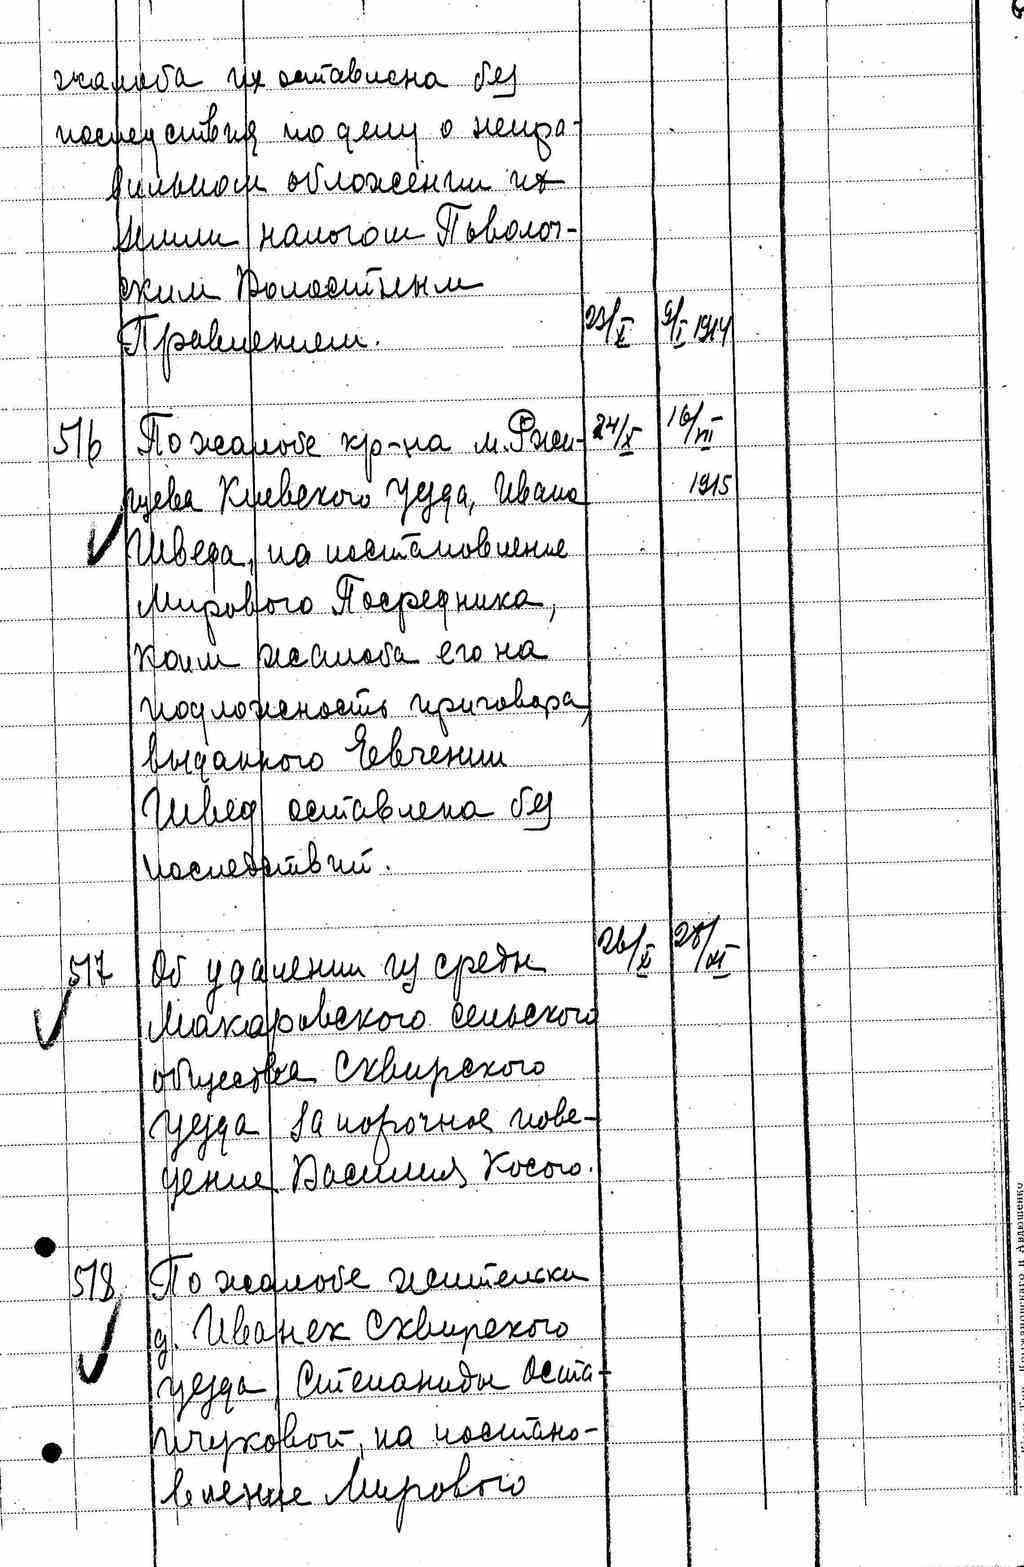 жалоба их оставлена без
последствия по делу о непра-
вильном обложении их
земли налогом Паволоч-
ским Волостным
Правлением. 23/X 9/I 1914
516 По жалобе кр-на м. Ржи- 24/X 16/VII
щева Киевского уезда, Ивана 1915
Шведа, на постановление
Мирового Посредника,
коим жалоба его на
подложность приговора,
выданного Евгении
Швед оставлена без
последствий.
517 Об удалении из среды 26/X 28/XI
Макаровского сельского
общества Сквирского
уезда за порочное пове-
дение Василия Косого.
518 По жалобе жительки
д. Иванек Сквирского
уезда Степаниды Оста-
пчуковой, на постано-
вление Мирового